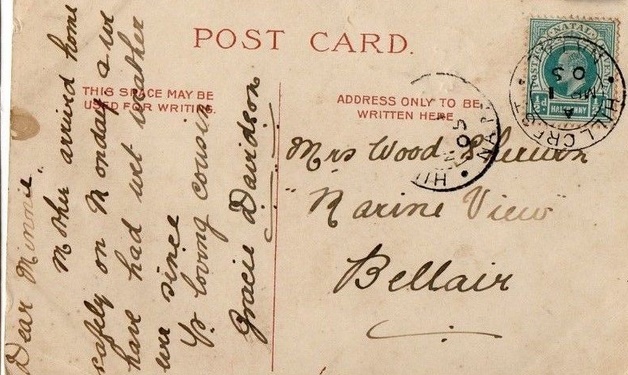 POST CARD.
THIS SPACE MAY BE
USED FOR WRITING.
ADDRESS ONLY TO BE
WRITTEN HERE
Dear Minnie
Mother arrived home
safely on Monday & we
have had wet weather
ever since
Yr loving cousin
Gracie Davidson
Mrs Wood
"Marine View"
Bellair
NATAL
POSTAGE
HALFPENNY
½d
HILLCREST
NATAL
05